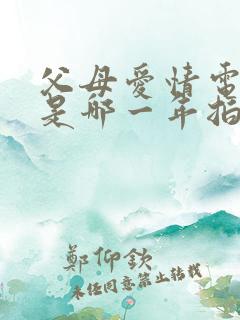 父母愛情電
是哪一年拍
鄭仰欽
未经同意禁止转载